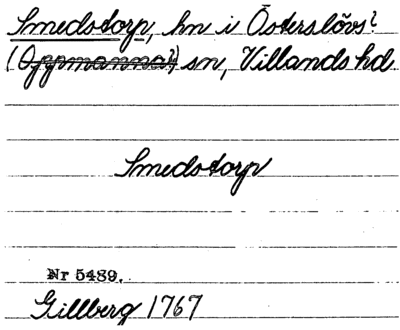 Smedstorp, hn i Österslövs?
(Oppmanna?) sn, Villands hd
Smedstorp
Nr 5489.
Gillberg 1767